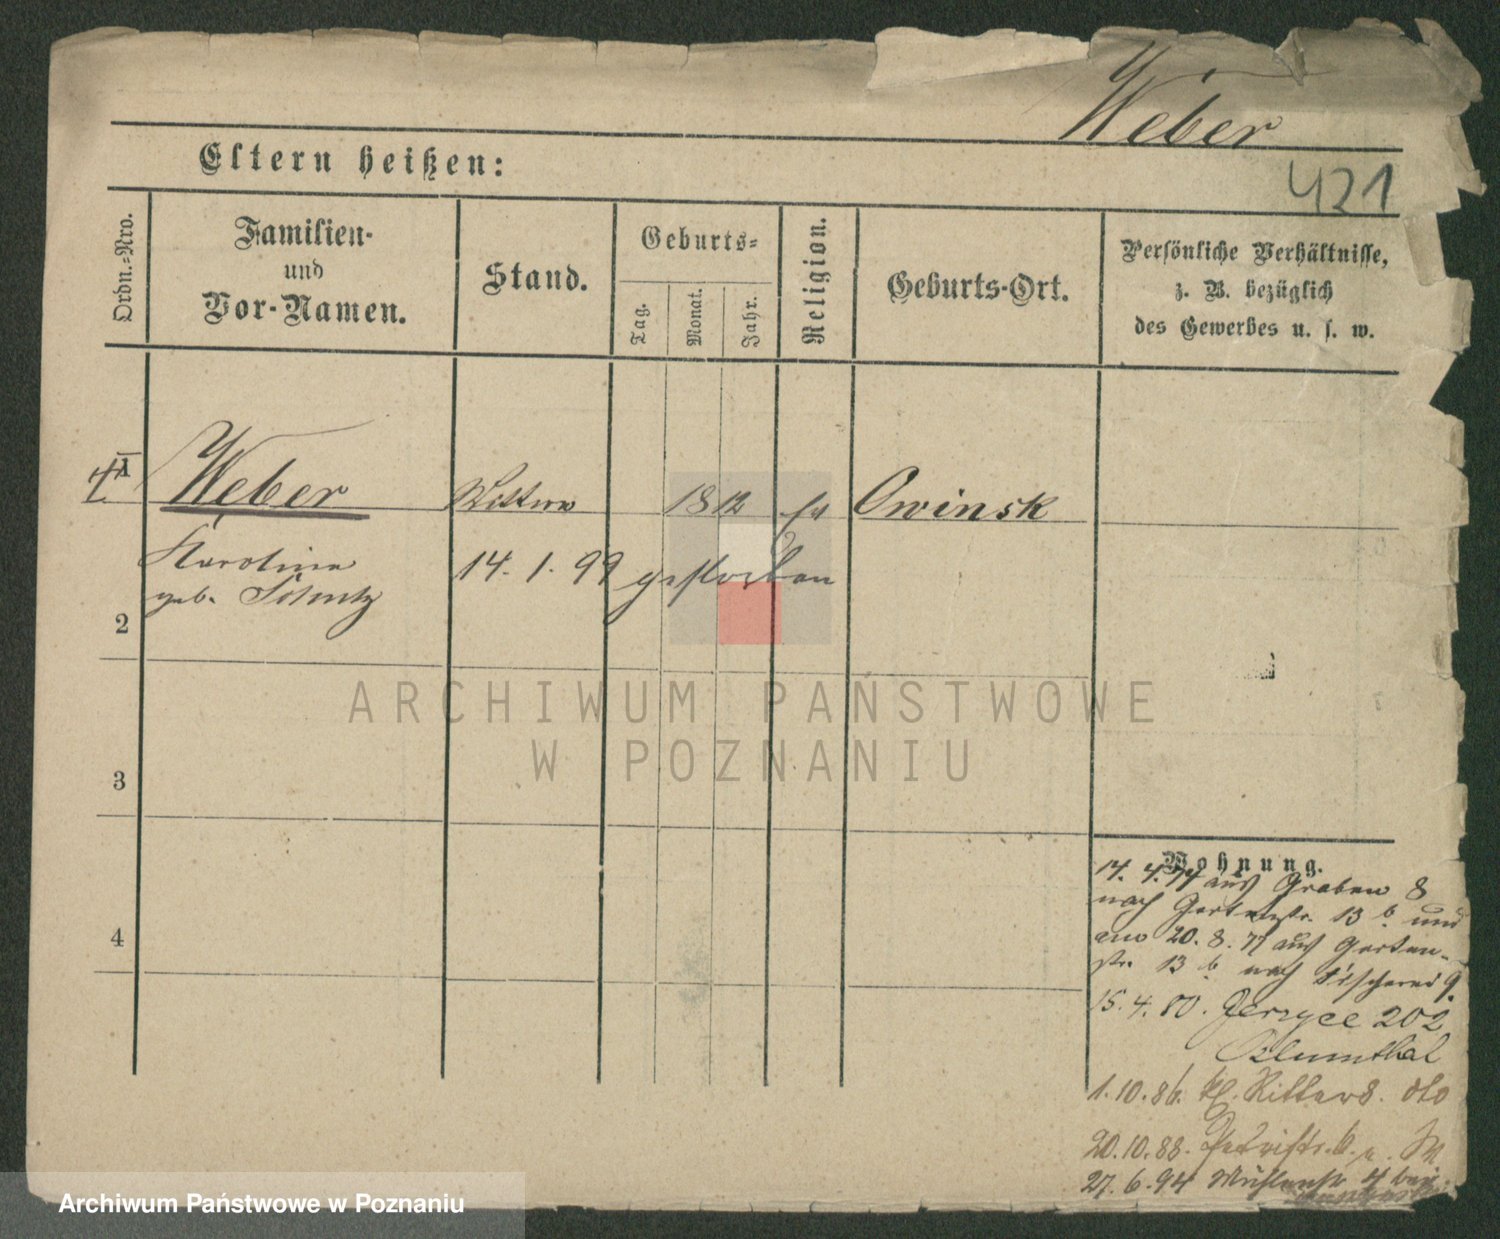 Weber
421
Eltern heißen:
Ordn.=Nro.
Familien-
und
Vor-Namen.
Stand.
Geburts=
Tag.
Monat.
Jahr.
Religion.
Geburts-Ort.
Persönliche Verhältnisse,
z. B. bezüglich
des Gewerbes u. s. w.
1
Weber
Wittwe
1812
Owinsk
Karolina
14. 1. 99 gestorben
geb.
2
3
4
Wohnung.
14. 4. 77 aus Graben 8
nach Gartenstr. 13 b und
am 20. 8. 77 aus Garten-
str. 13 b nach Fischerei 9.
15. 4. 80. Jerzyce 202
Blumthal
1. 10. 86. kl. Ritterstr.
20. 10. 88. Petristr. 6.
27. 6. 94 Mühlenstr
ARCHIWUM PAŃSTWOWE
W POZNANIU
Archiwum Państwowe w Poznaniu